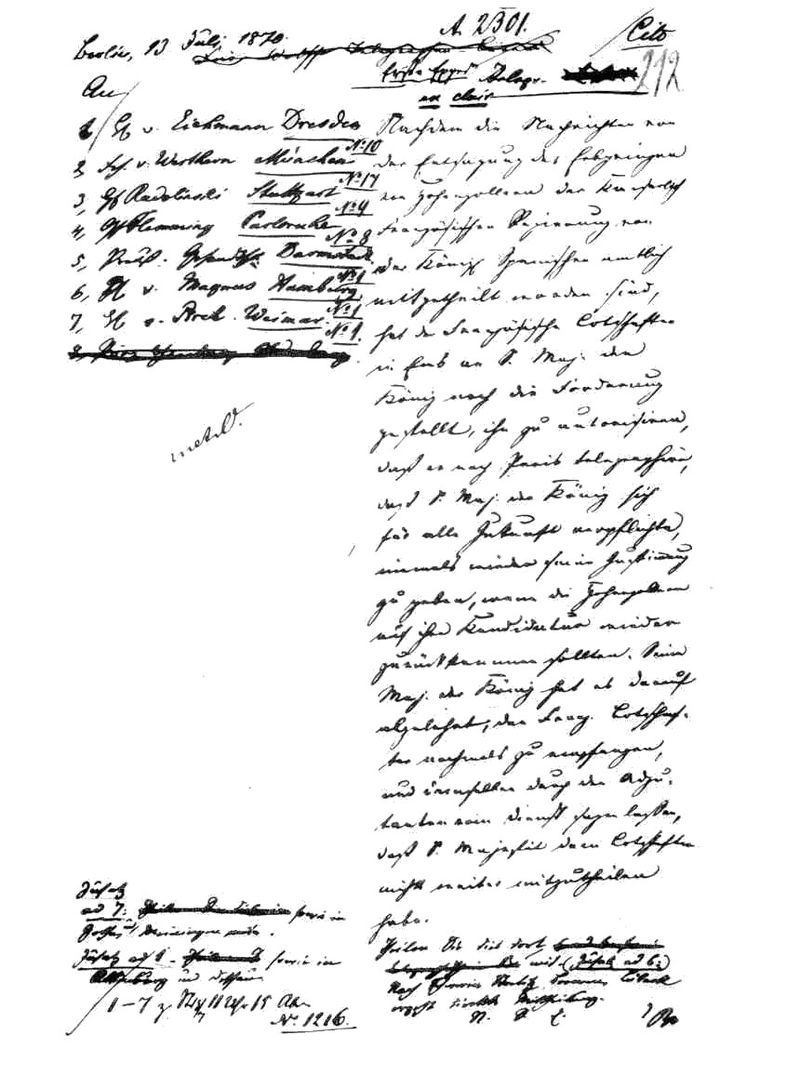 Berlin, 13 Juli 1870.
A. 2301.
Cito
212
Telegr.
en clair
An
1, H v. Eichmann Dresden
No 10
2, Frh. v. Werthern München
No 17
3, Gf Radolinski Stuttgart
No 4
4, Gf Flemming Carlsruhe
No 8
5, Preuß. Gesandtsch. Darmstadt
No 1
6, H v. Magnus Hamburg
No 1
7, H v. Weimar
No 1.
Nachdem die Nachrichten von
der Entsagung des Erbprinzen
von Hohenzollern der Kaiserlich
Französischen Regierung von
der König. Spanischen amtlich
mitgetheilt worden sind,
hat der Französische Botschafter
in Ems an S. Maj. den
König noch die Forderung
gestellt, ihn zu autorisiren,
daß er nach Paris telegraphire,
daß S. Maj. der König sich
für alle Zukunft verpflichte,
niemals wieder seine Zustimmung
zu geben, wenn die Hohenzollern
auf ihre Kandidatur wieder
zurückkommen sollten. Seine
Maj. der König hat es darauf
abgelehnt, den Franz. Botschaf-
ter nochmals zu empfangen,
und demselben durch den Adju-
tanten vom Dienst sagen lassen,
daß S. Majestät dem Botschafter
nichts weiter mitzutheilen
habe.
Theilen Sie dies dort mit (Zusatz ad 6:)
Zusatz
ad 7: sowie in
Gotha, Meiningen
Zusatz ad 1 sowie in
Altenburg und Dessau
1-7 z. Stat 11 Uhr 15 Ab
No. 1216.